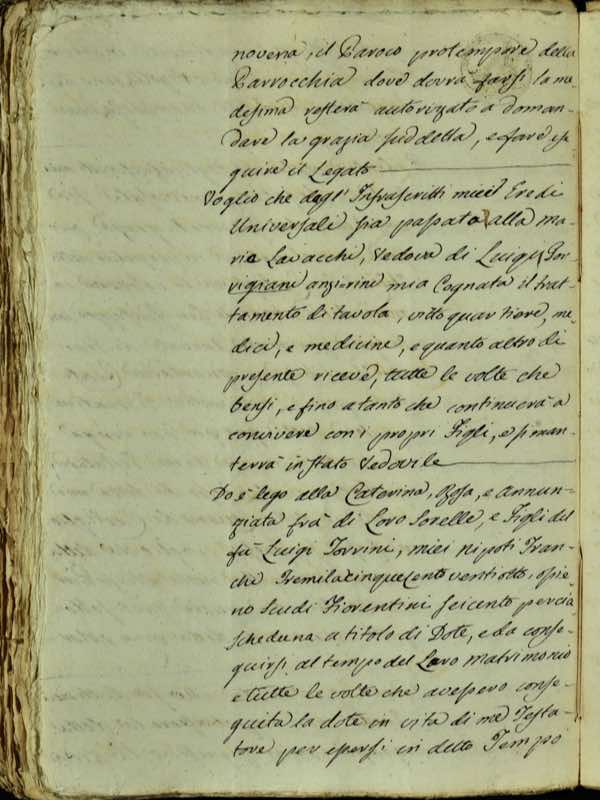 noveria, il Paroco protempore della
Parrocchia dove dovrà farsi la me-
desima resterà autorizato a doman-
dare la grazia suddetta, e fare ese-
guire il Legato
Voglio che dagl' Infrascritti miei Eredi
Universali sia passato alla Ma-
ria Lavacchi, Vedova di Luigi
mia Cognata il trat-
tamento di tavola, vitto quartiere, me-
dici, e medicine, e quanto altro di
presente riceve, tutte le volte che
bensi, e fino a tanto che continuerà a
convivere con i propri Figli, e si man-
terrà in stato Vedovile
Do e lego alla Caterina, Rosa, e Annun-
ziata frà di Loro Sorelle, e Figli del
fù Luigi Torrini, miei Nipoti Fran-
chi Tremilacinquecentoventiotto, ossie-
no Scudi Fiorentini seicento per cia-
scheduna a titolo di Dote, e da conse-
guirsi al tempo del Loro Matrimonio
e tutte le volte che avessero conse-
guita la dote in vita di me Testa-
tore per essersi in detto Tempo